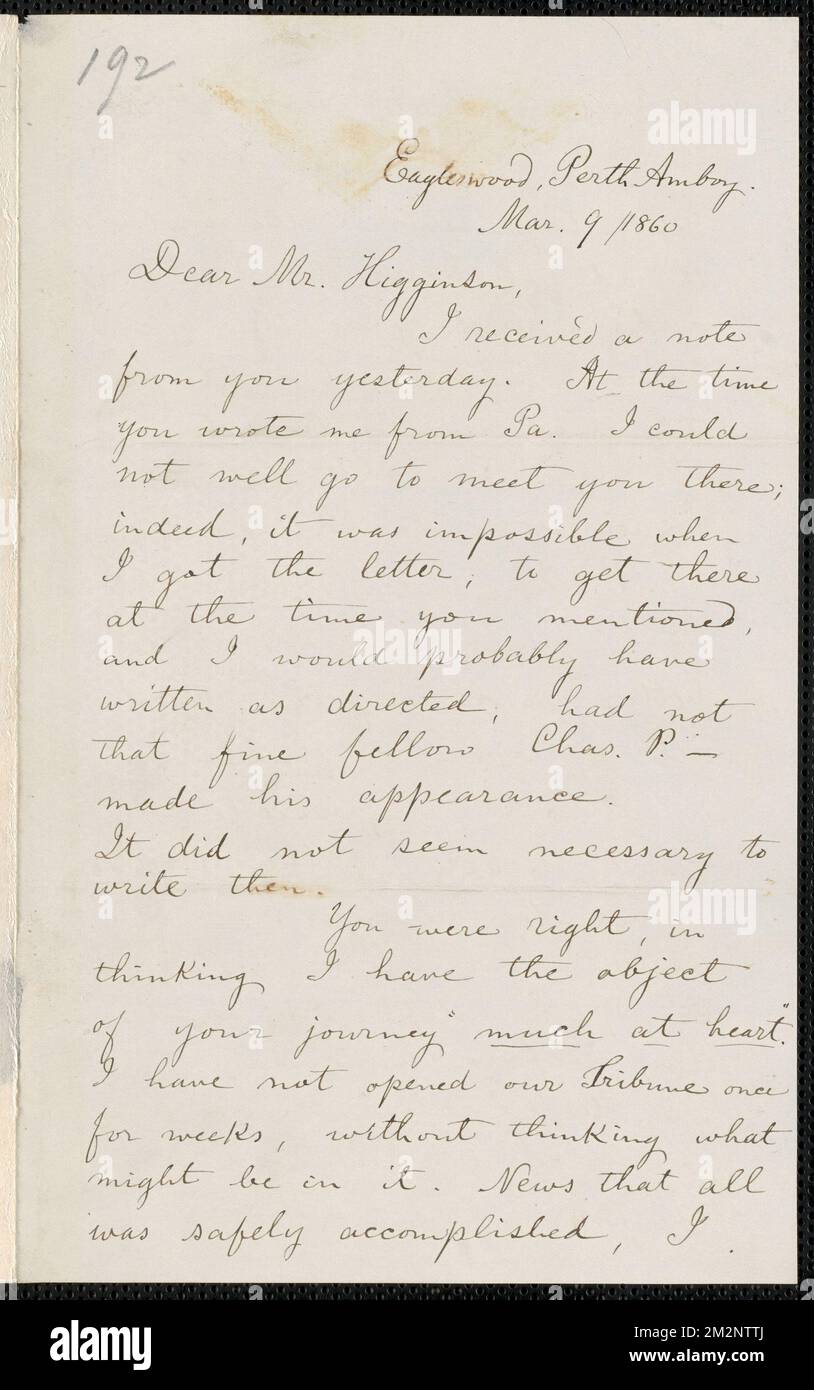 192
Eagleswood, Perth Amboy.
Mar. 9/1860
Dear Mr. Higginson,
I received a note
from you yesterday. At the time
you wrote me from Pa. I could
not well go to meet you there;
indeed, it was impossible when
I got the letter, to get there
at the time you mentioned,
and I would probably have
written as directed, had not
that fine fellow Chas. P. —
made his appearance.
It did not seem necessary to
write then.
You were right, in
thinking I have the object
of your journey "much at heart".
I have not opened our Tribune once
for weeks, without thinking what
might be in it. News that all
was safely accomplished, I
alamy
alamy
alamy
alamy
Image ID: 2M2NTTJ
www.alamy.com